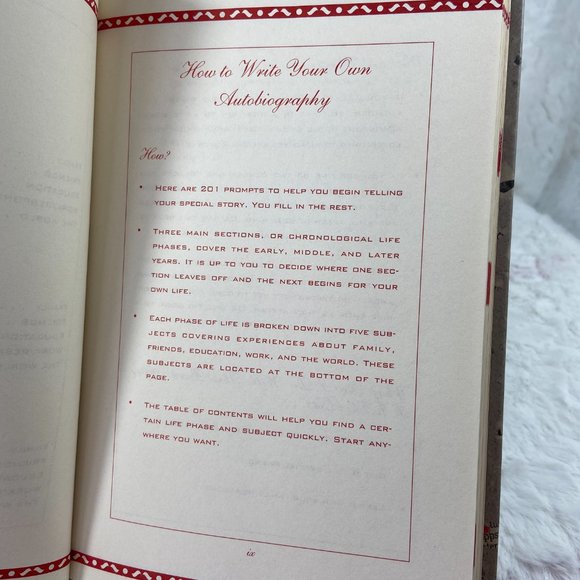 How to Write Your Own
Autobiography
How?
• Here are 201 prompts to help you begin telling
your special story. You fill in the rest.
• Three main sections, or chronological life
phases, cover the early, middle, and later
years. It is up to you to decide where one sec-
tion leaves off and the next begins for your
own life.
• Each phase of life is broken down into five sub-
jects covering experiences about family,
friends, education, work, and the world. These
subjects are located at the bottom of the
page.
• The table of contents will help you find a cer-
tain life phase and subject quickly. Start any-
where you want.
ix